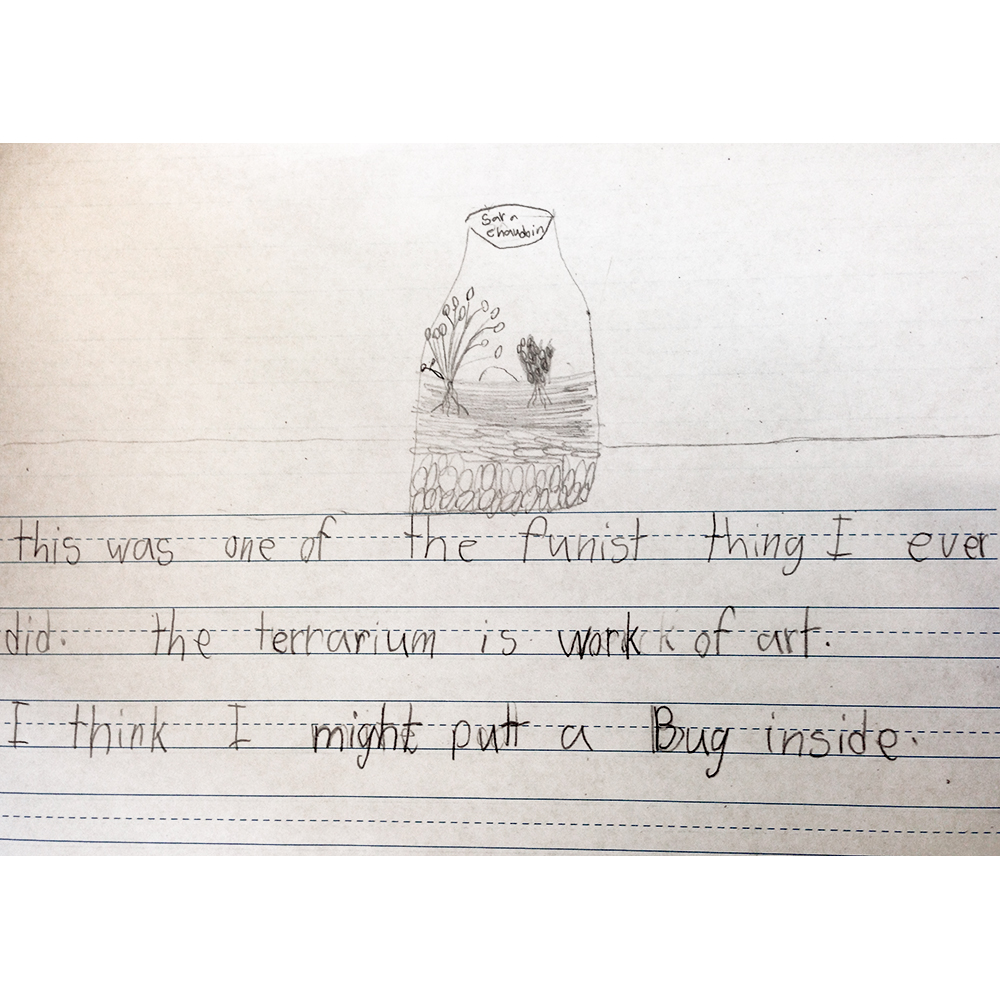 Sara
Chaudoin
this was one of the funist thing I ever
did. the terrarium is work of art.
I think I might putt a Bug inside.